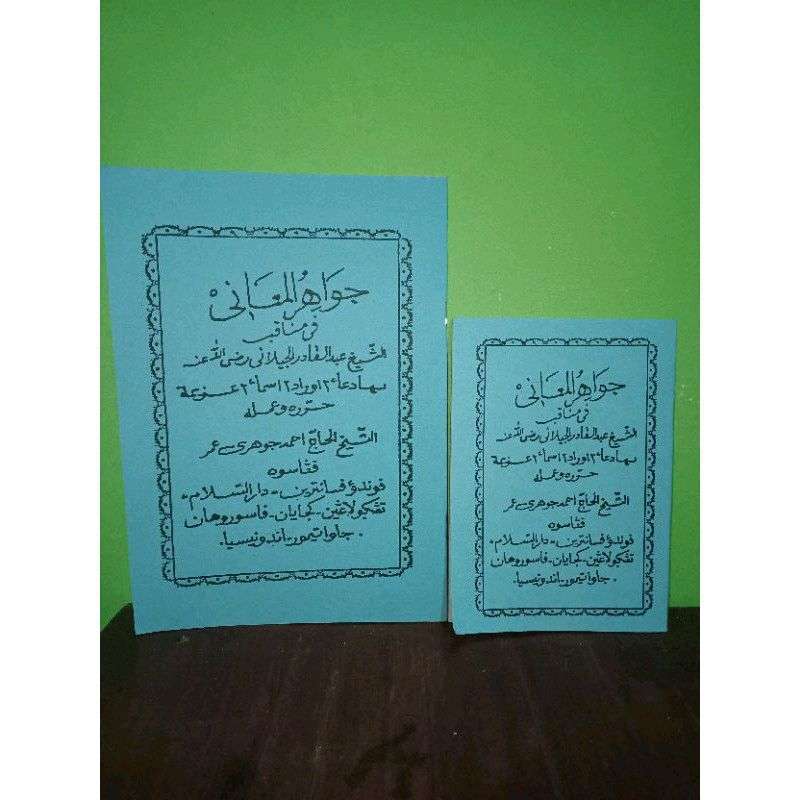 جواهر المعانى
فى مناقب
الشيخ عبد القادر الجيلانى رضى الله عنه
بها دعاء ١٢ اوراد ١٢ اسماء ٢ عزيمة
حرره وعمله
الشيخ الحاج احمد جوهرى عمر
فڠاسوه
فوندؤ فسانترين - دار السلام -
تڠكولاڠين - كجايان - فاسوروهان
. جاوا تيمور - اندونيسيا .
جواهر المعانى
فى مناقب
الشيخ عبد القادر الجيلانى رضى الله عنه
بها دعاء ١٢ اوراد ١٢ اسماء ٢ عزيمة
حرره وعمله
الشيخ الحاج احمد جوهرى عمر
فڠاسوه
فوندؤ فسانترين - دار السلام -
تڠكولاڠين - كجايان - فاسوروهان
. جاوا تيمور - اندونيسيا .